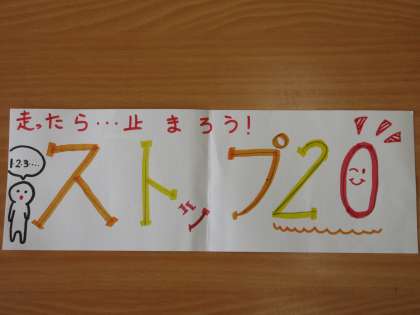 走ったら…止まろう!
123....
ストップ20